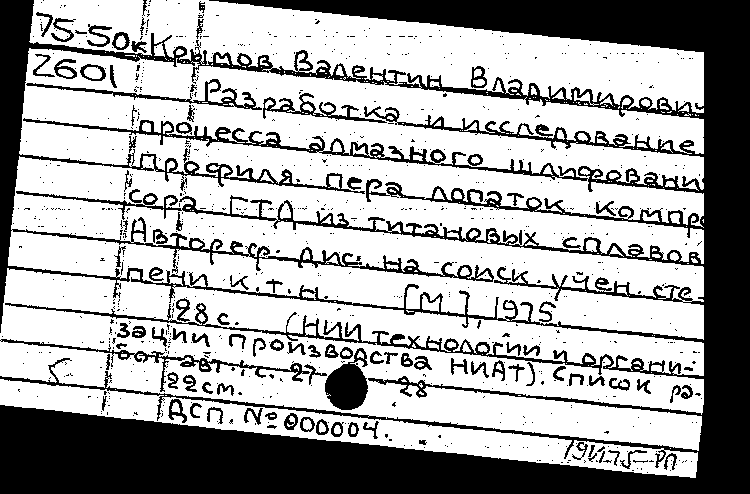 75-50к Крымов, Валентин Владимирович
2601
Разработка и исследование
процесса алмазного шлифовани
профиля пера лопаток компре
сора ГТД из титановых сплавов
Автореф. дис. на соиск. учен. сте-
пени к.т.н. [М.], 1975.
28 с. (НИИ технологии и органи-
зации производства НИАТ). Список ра-
бот авт.: с. 27-28
22 см.
ДСП. № 000004.